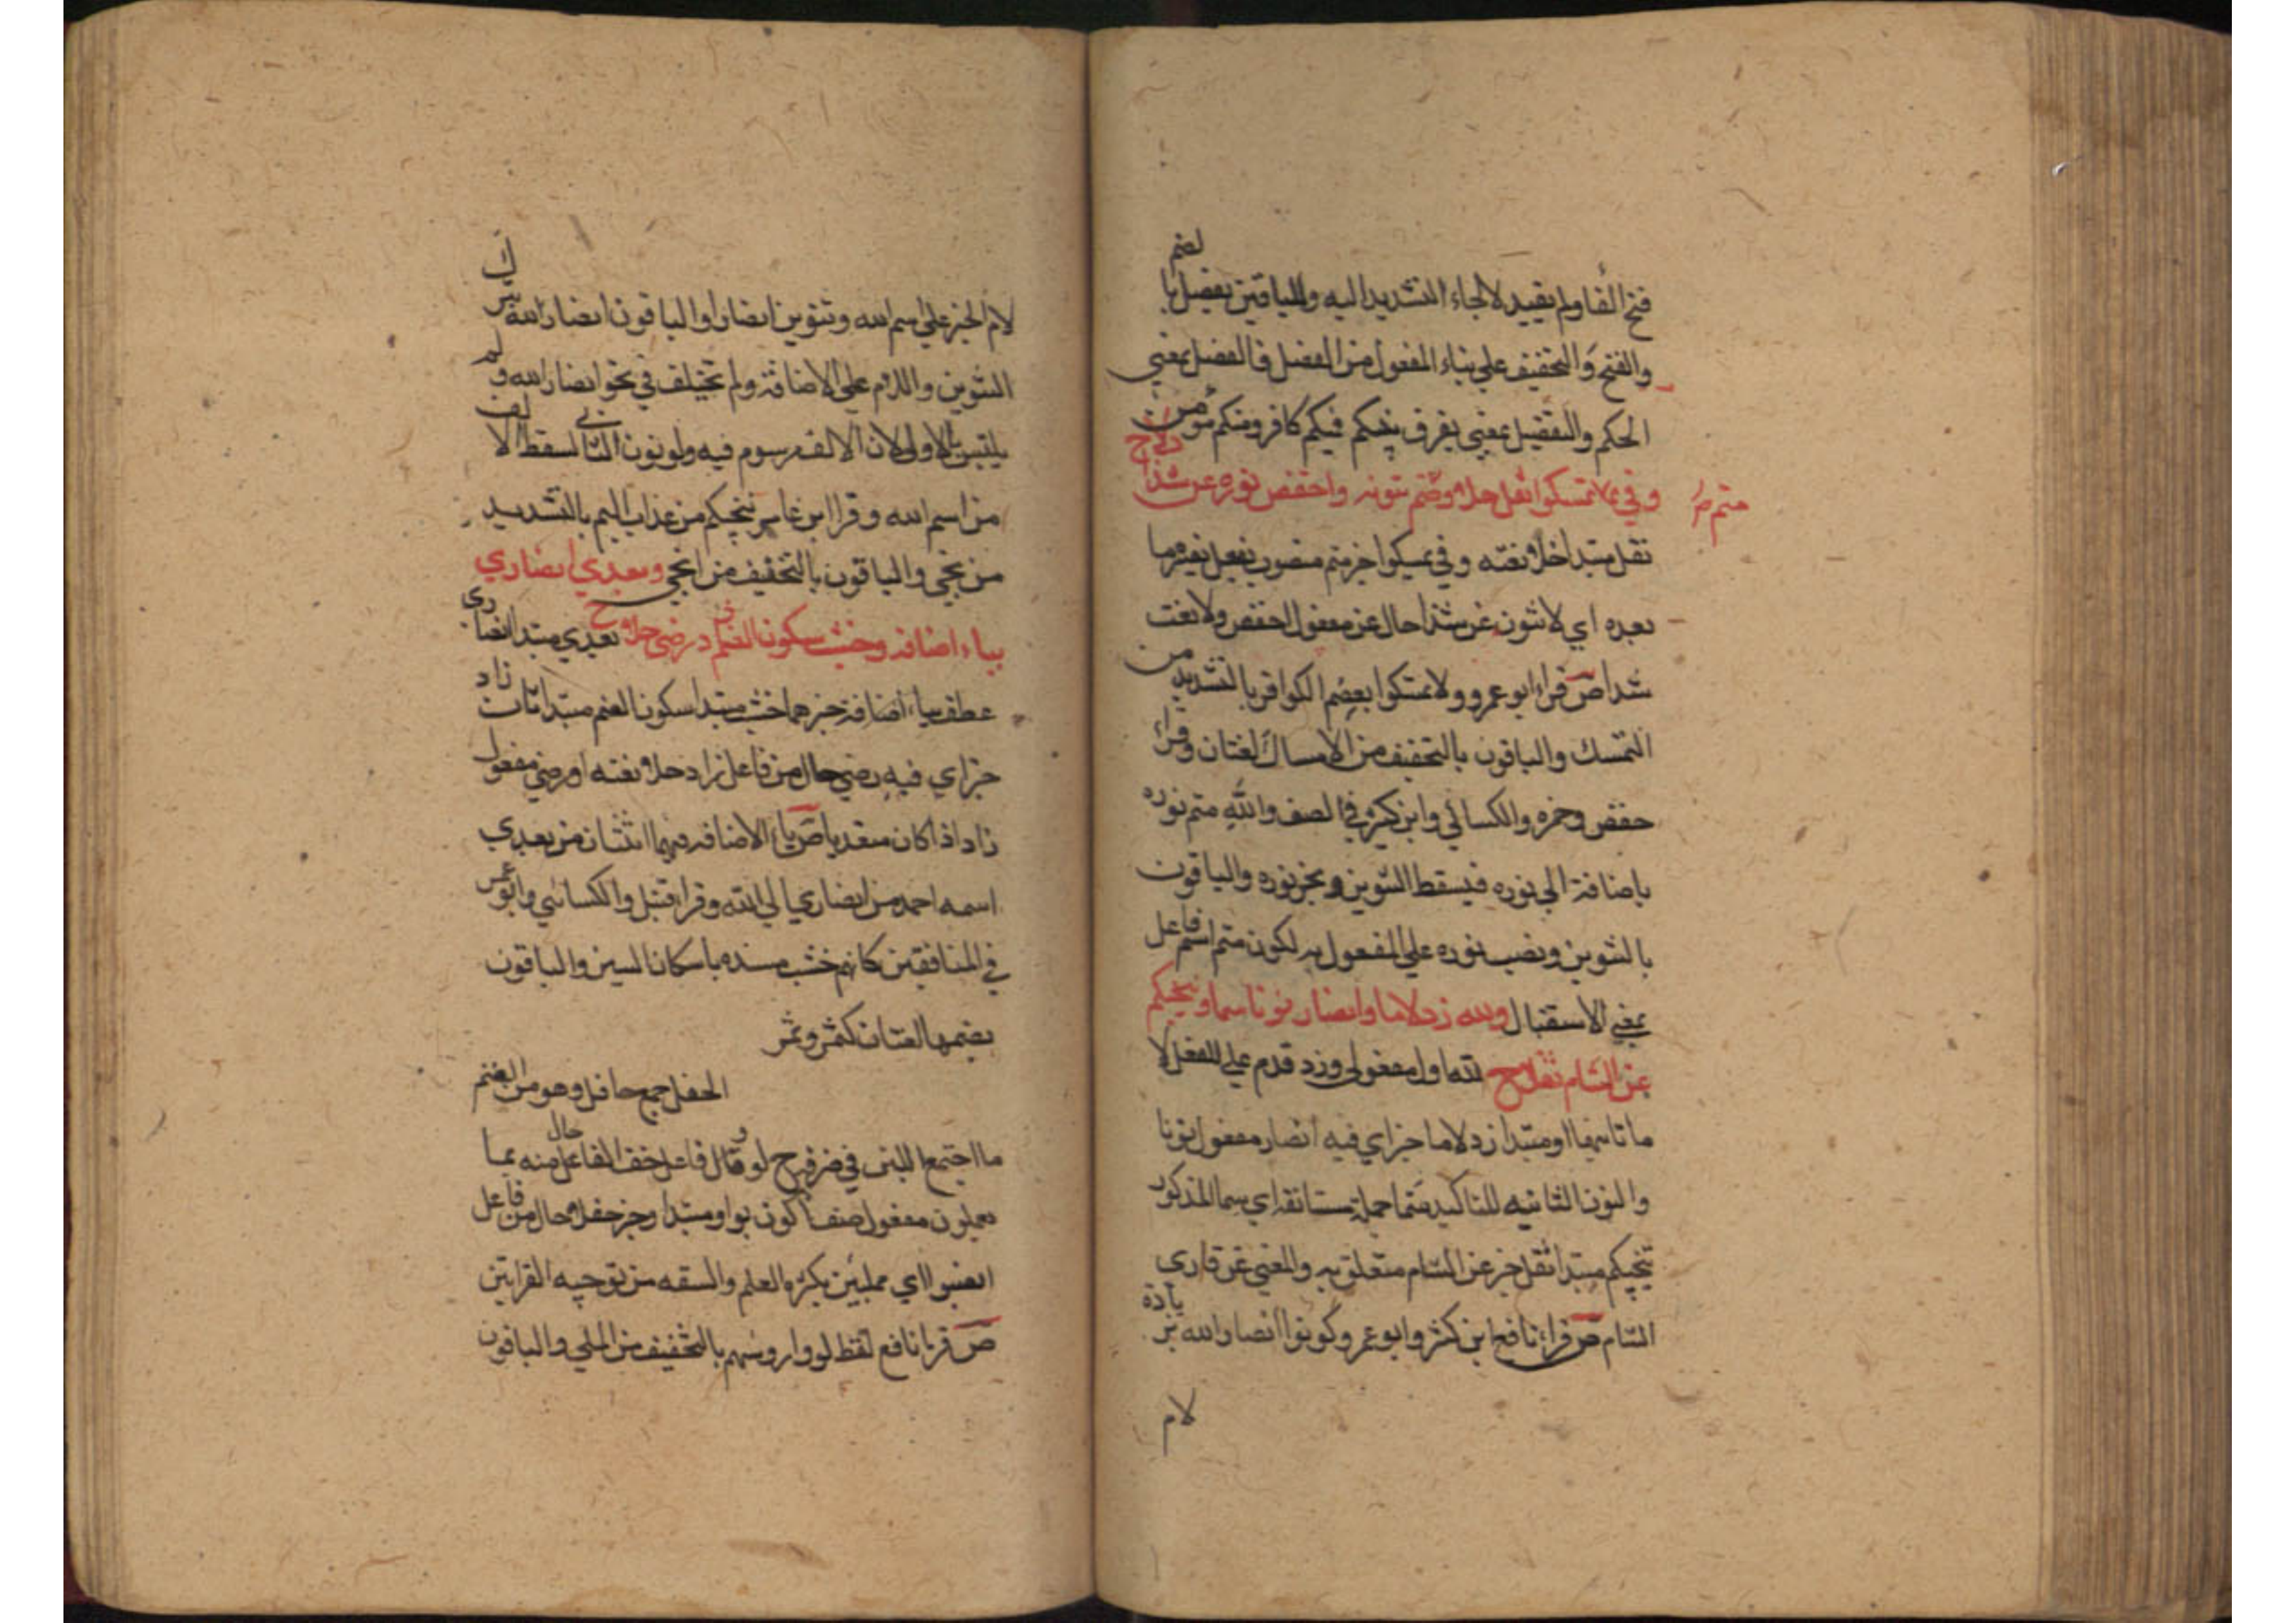 فتح الفا ولم يقيد لالجاء التشديد اليه وللباقين يفصل بالضم
والفتح والتخفيف علي بناء المفعول من الفصل فالفصل بمعني
الحكم والتفصيل بمعني يفرق بينكم فيكم كافر ومنكم مومن
وفي تمسكوا ثقل حلا ومتم لا تنونه واخفض نوره عن شذا دلا ح
متم
ثقل مبتدا حلا نعته وفي تمسكوا خبر متم منصوب بفعل يفسره ما
بعده اي لا تنون عن شذا حال عن مفعول اخفض ولا نعت
شذا ص قراء ابو عمرو ولا تمسكوا بعصم الكوافر بالتشديد من
التمسك والباقون بالتخفيف من الامساك لغتان وقراء
حفص وحمزه والكسائي وابن كثير في الصف والله متم نوره
باضافة الي نوره فيسقط التنوين ويجر نوره والباقون
بالتنوين ونصب نوره علي المفعول به لكون متم اسم فاعل
بمعني الاستقبال ولله زد لاما وانصار نونا سما وتنجيكم
عن الشام ثقلا ح لله اول مفعولي وزد قدم علي الفعل لا
ما ثانيهما او مبتدا زد لاما خبر اي فيه انصار مفعول نونا
والنون الثانيه للتاكيد سما جملة مستانفه اي سما المذكور
تنجيكم مبتدا ثقل خبر عن الشام متعلق به والمعني عن قاري
الشام ص قراء نافع ابن كثير وابو عمرو كونوا انصار الله بزيادة
لام
لام الجر علي اسم الله وتنوين انصارا والباقون انصار الله بترك
التنوين واللام علي الاضافة ولم تختلف في نحو انصار الله ولم
يلتبس بالاولي لان الالف مرسوم فيه ولو نون الثاني لسقط الالف
من اسم الله وقرا ابن عامر تنجيكم من عذاب اليم بالتشديد
من نجي والباقون بالتخفيف من انجي وبعدي انصاري
بياء اضافه وخشب سكون الضم زاد رضي حلا ح بعدي مبتدا انصاري
عطف بياء اضافة خبرهما خشب مبتدا سكون الضم مبتدا ثان زاد
خبر اي فيه رضي حال من فاعل زاد حلا نعته او رضي مفعول
زاد اذا كان متعديا ص ياء الاضافه فيها اثنتان من بعدي
اسمه احمد من انصاري الي الله وقراء قنبل والكسائي وابو عمرو
في المنافقين كانهم خشب مسنده باسكان السين والباقون
بضمها لغتان كثمر وثمر
الحفل جمع حافل وهو من الغنم
ما اجتمع اللبن في ضرعه ح لووا قال فاعل خف الفاعل منه حال بما
يعملون مفعول صف اكون بواو مبتدا وخبر حفلا حال من فاعل
انصبوا اي ممليين بكثره العلم والسقه من توجيه القرايتين
ص قرا نافع لفظ لووا روسهم بالتخفيف من اللي والباقون